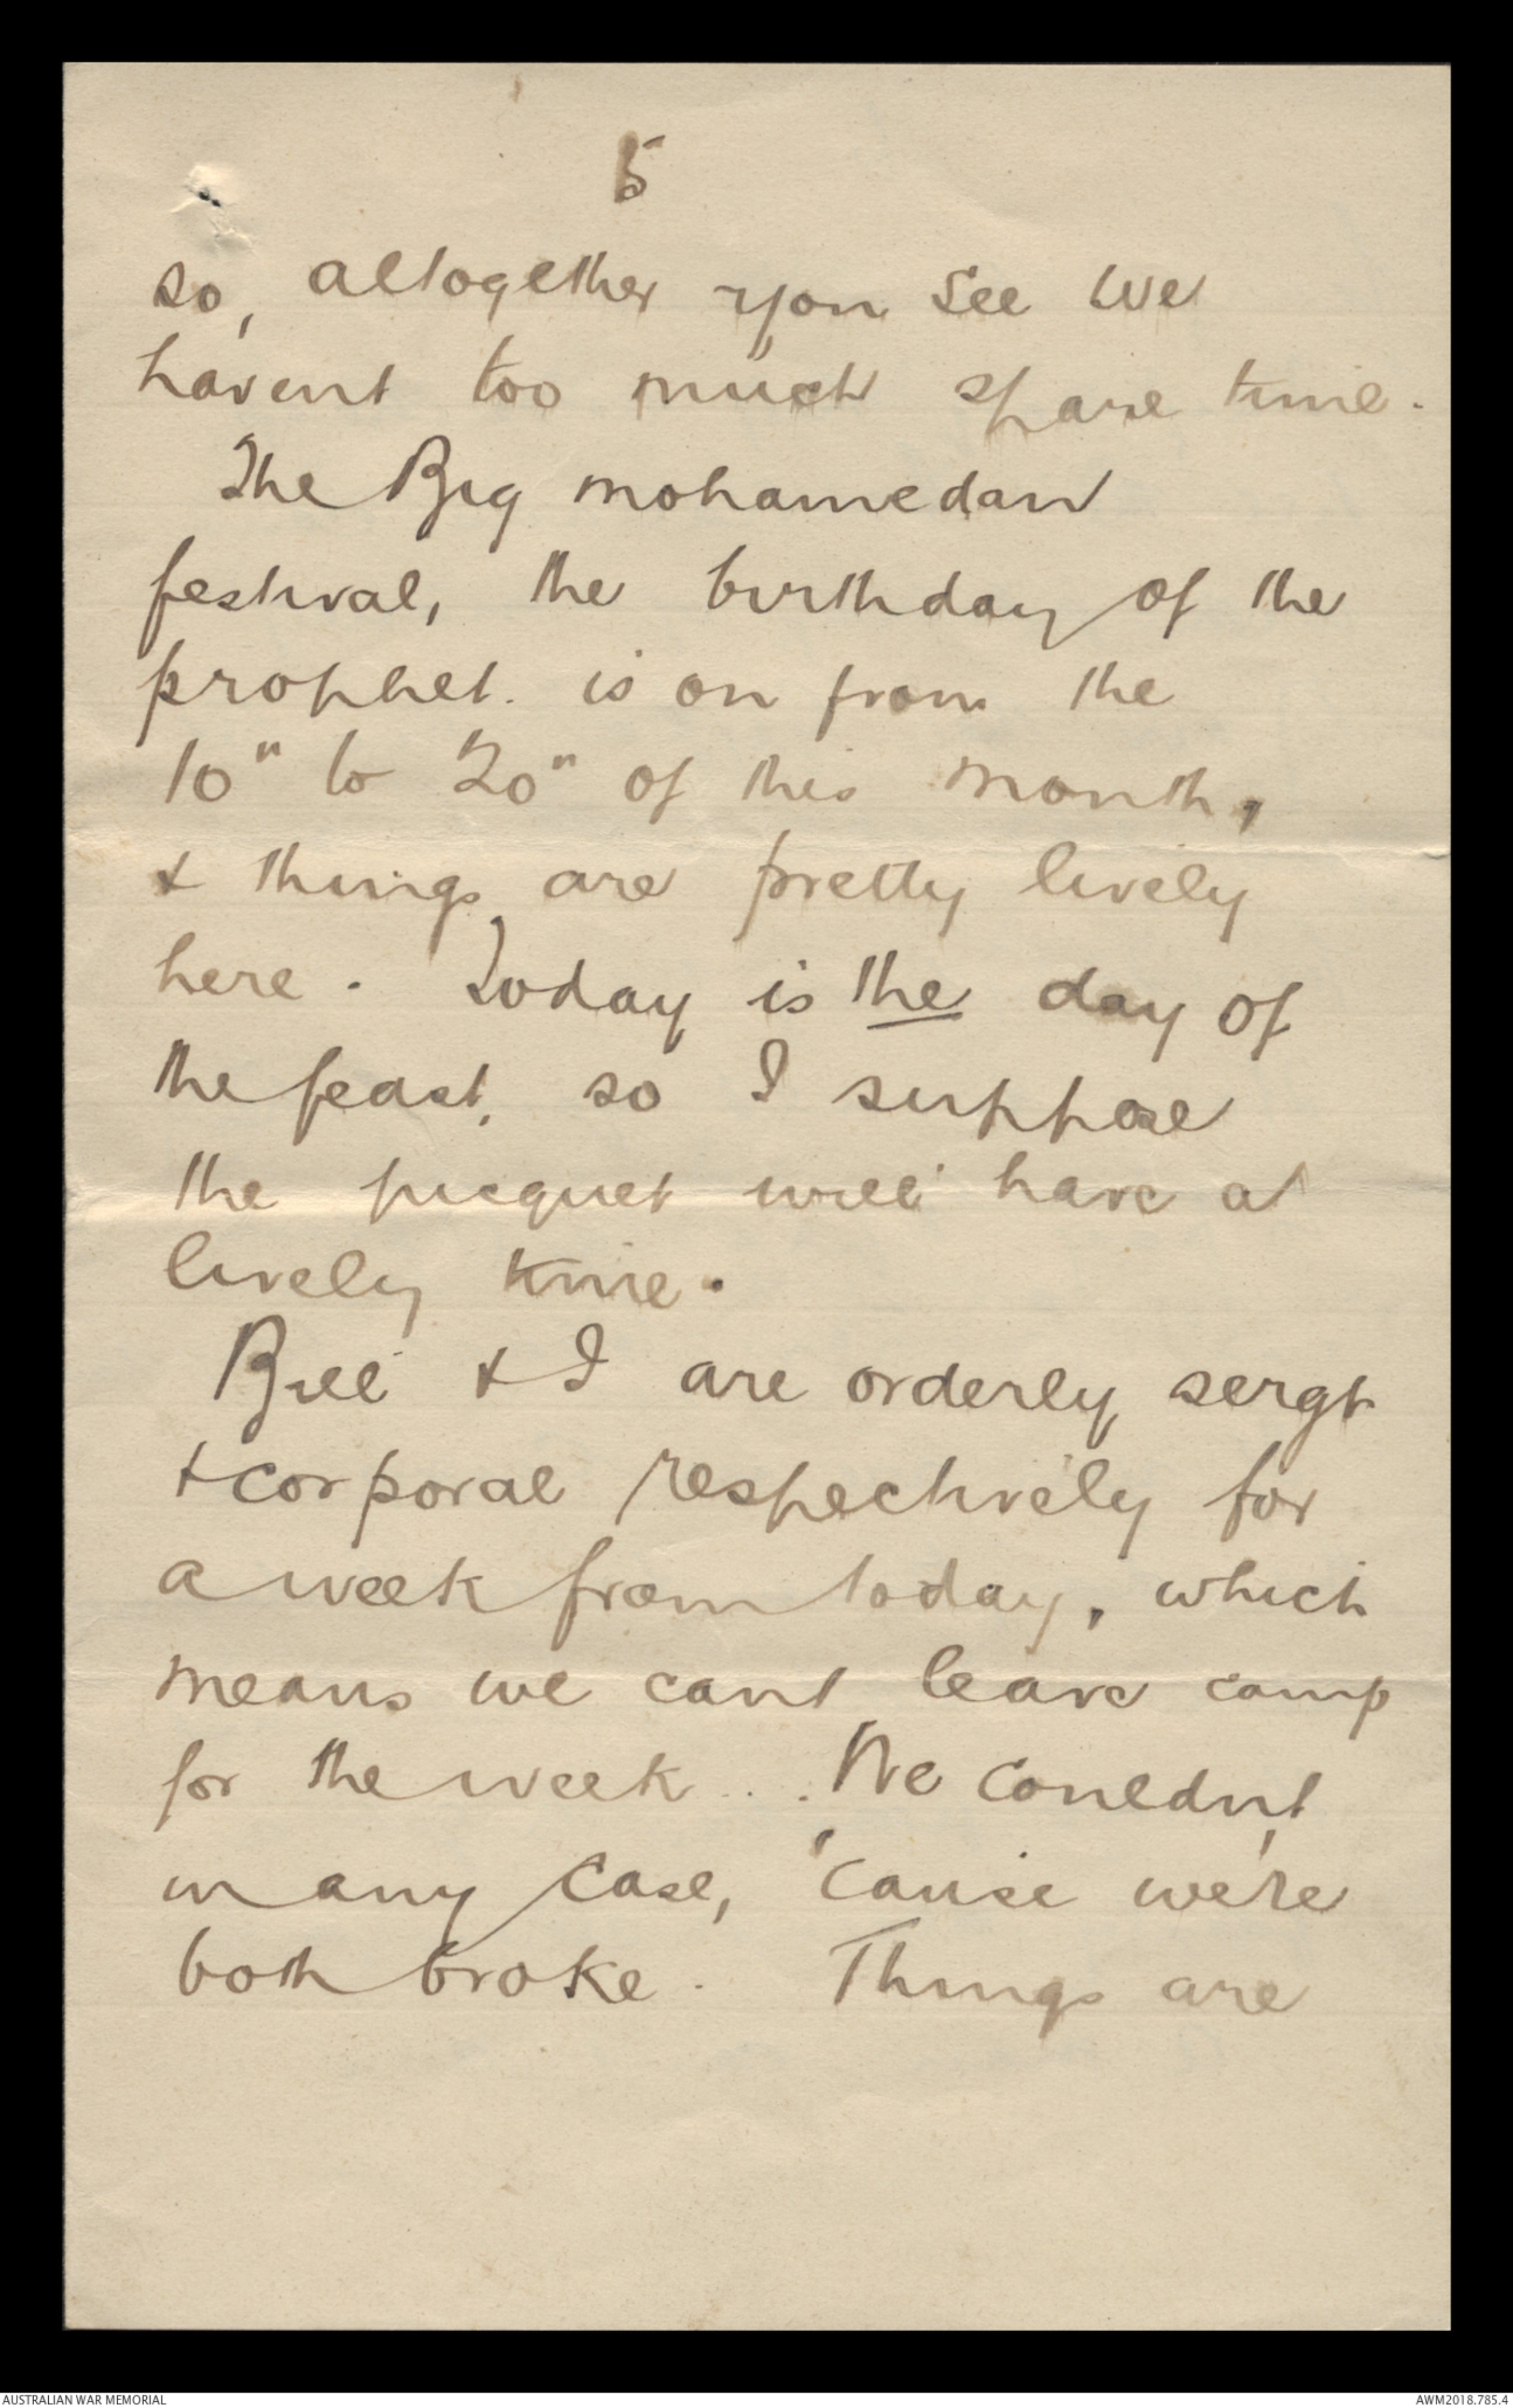 5
so, altogether you see we
havent too much spare time.
The Big mohamedan
festival, the birthday of the
prophet. is on from the
10" to 20" of this month,
& things are pretty lively
here. Today is the day of
the feast, so I suppose
the picquet will have a
lively time.
Bill & I are orderly sergt
& corporal respectively for
a week from today, which
means we cant leave camp
for the week... We couldn't
in any case, 'cause we're
both broke. Things are
AUSTRALIAN WAR MEMORIAL
AWM2018.785.4